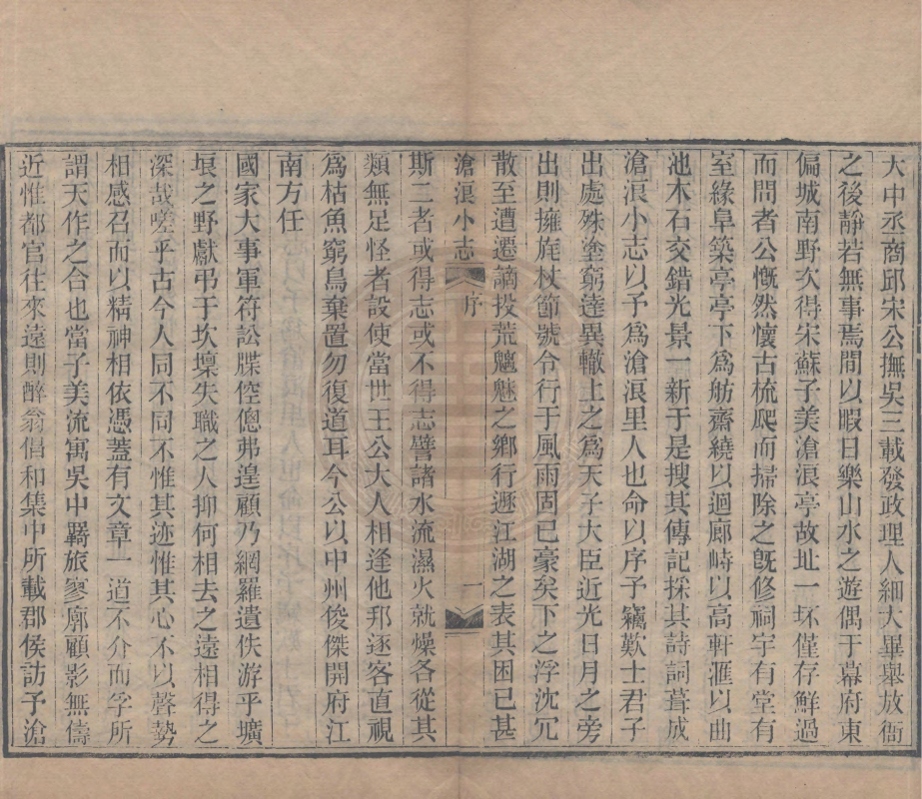 大中丞商邱宋公撫吳三載發政理人細大畢舉放衙
之後靜若無事焉間以暇日樂山水之遊偶于幕府東
偏城南野次得宋蘇子美滄浪亭故址一坏僅存鮮過
而問者公慨然懷古梳爬而掃除之旣修祠宇有堂有
室緣阜築亭亭下爲舫齋繞以迴廊峙以高軒滙以曲
池木石交錯光景一新于是搜其傳記採其詩詞葺成
滄浪小志以予爲滄浪里人也命以序予竊歎士君子
出處殊塗窮達異轍上之爲天子大臣近光日月之旁
出則擁旄杖節號令行于風雨固已豪矣下之浮沈冗
散至遭遷謫投荒魑魅之鄉行遯江湖之表其困已甚
滄浪小志 序 一
斯二者或得志或不得志譬諸水流濕火就燥各從其
類無足怪者設使當世王公大人相逢他邦逐客直視
爲枯魚窮鳥棄置勿復道耳今公以中州俊傑開府江
南方任
國家大事軍符訟牒倥傯弗遑顧乃網羅遺佚游乎壙
埌之野獻弔于坎壈失職之人抑何相去之遠相得之
深哉嗟乎古今人同不同不惟其迹惟其心不以聲勢
相感召而以精神相依憑蓋有文章一道不介而孚所
謂天作之合也當子美流寓吳中羇旅寥廓顧影無儔
近惟都官往來遠則醉翁倡和集中所載郡侯訪予滄